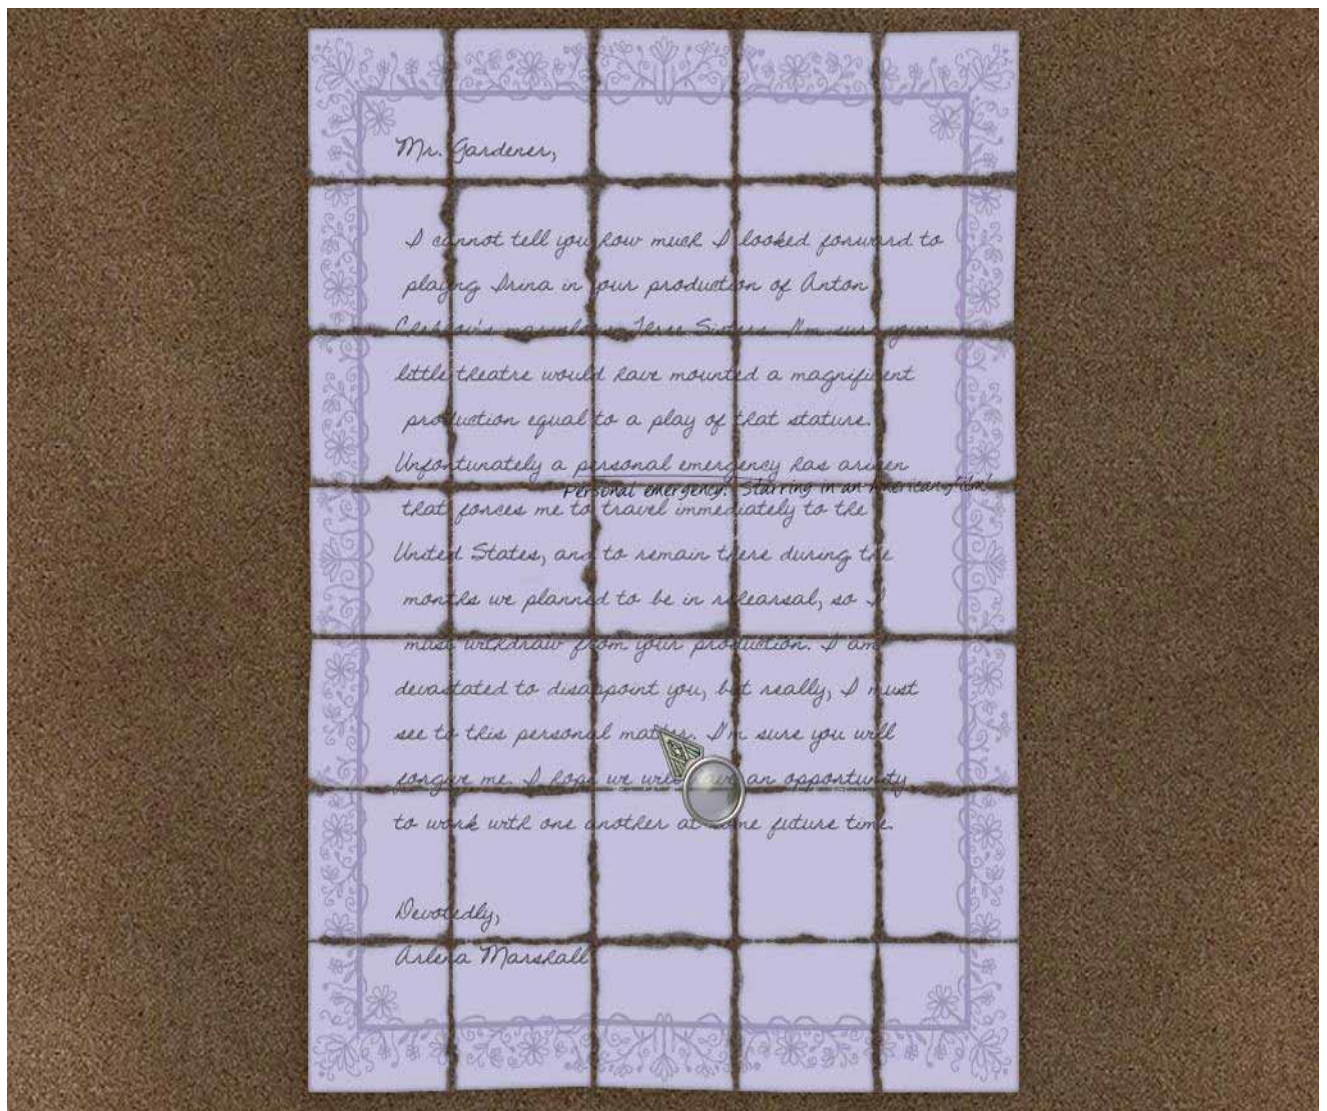 Mr. Gardener,
I cannot tell you how much I looked forward to
playing Irina in your production of Anton
Chekhov's marvelous Three Sisters. I'm sure your
little theatre would have mounted a magnificent
production equal to a play of that stature.
Unfortunately a personal emergency has arisen
Personal emergency! Starring in an American film!
that forces me to travel immediately to the
United States, and to remain there during the
months we planned to be in rehearsal, so I
must withdraw from your production. I am
devastated to disappoint you, but really, I must
see to this personal matter. I'm sure you will
forgive me. I hope we will have an opportunity
to work with one another at some future time.
Devotedly,
Arlena Marshall